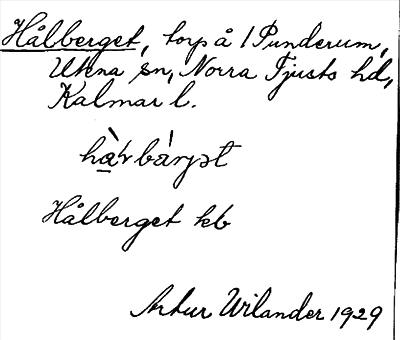 Hålberget, torp å 1 Punderum,
Ukna sn, Norra Tjusts hd,
Kalmar l.
Hålberget kb
Artur Wilander 1929